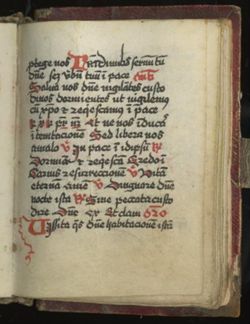 ptege nos Nunc dimittis servum tuu
dne scz vbu tuu i pace
Salva nos dne vigilates custo
di nos dormientes ut vigilemus
cu xpo & reqescamus i pace
pr nr Et ne nos iduca
i temtacione Sed libera nos
amalo V In pace i idipsu R
Dormia & reqesca Credo i
Carnis resurreccione V Vita
eterna ame V Dingnare dne
nocte ista R Sine peccato custo
dire Dne ex Et clam Oro
Visita qs dne habitacione ista